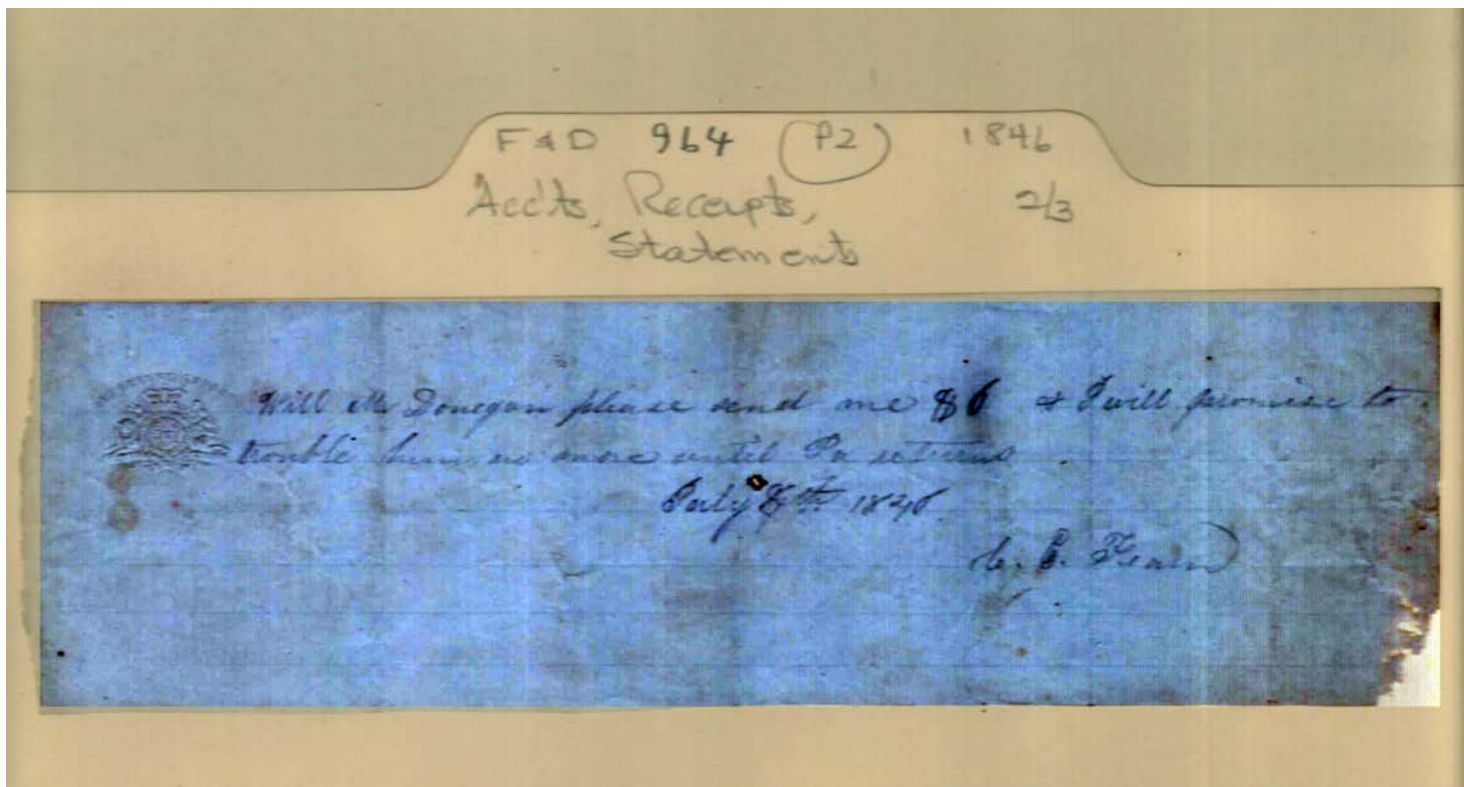 F & D 964 (P2) 1846
Acc'ts, Receipts, 2/3
Statements
Will Mr Donegan please send me $6 & I will promise to
trouble him no more until Pa returns
July 8th 1846
C. E. Fearn